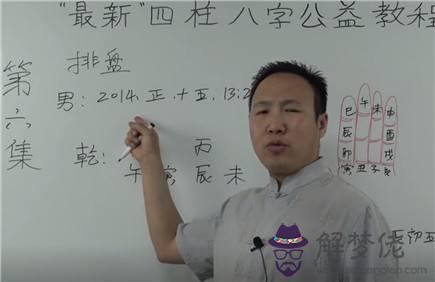 "最新"四柱八字公益教程
第六集
排盘
男:2014.正.十五.13:2
乾: 丙
午 寅 辰 未
巳 午 未 申
辰 酉
卯 戌
寅 丑 子 亥
初五
解梦佬